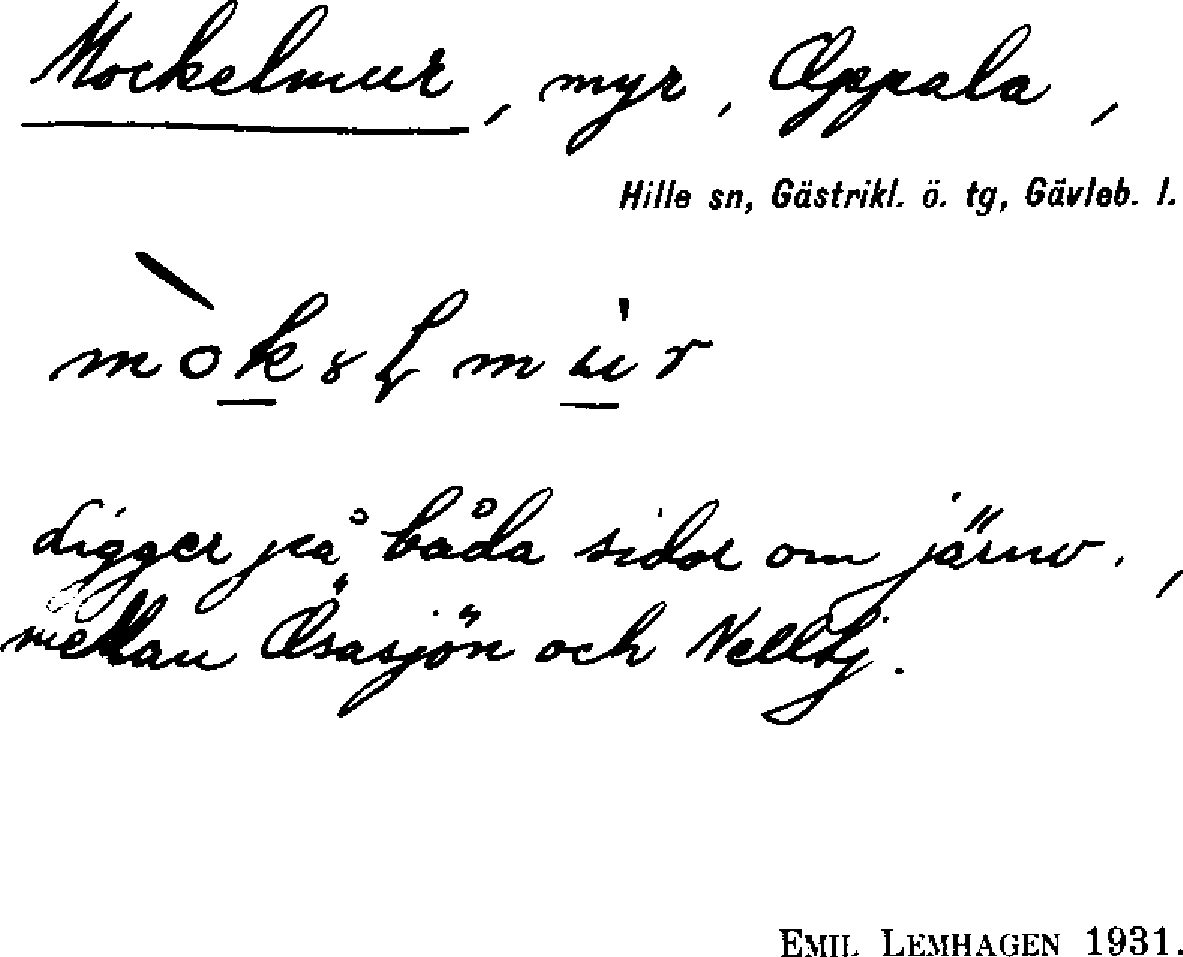 Mockelmur, myr, Oppala,
Hille sn, Gästrikl. ö. tg, Gävleb. l.
Ligger på båda sidor om järnv.,
mellan Ösasjön och Velltj.
EMIL LEMHAGEN 1931.